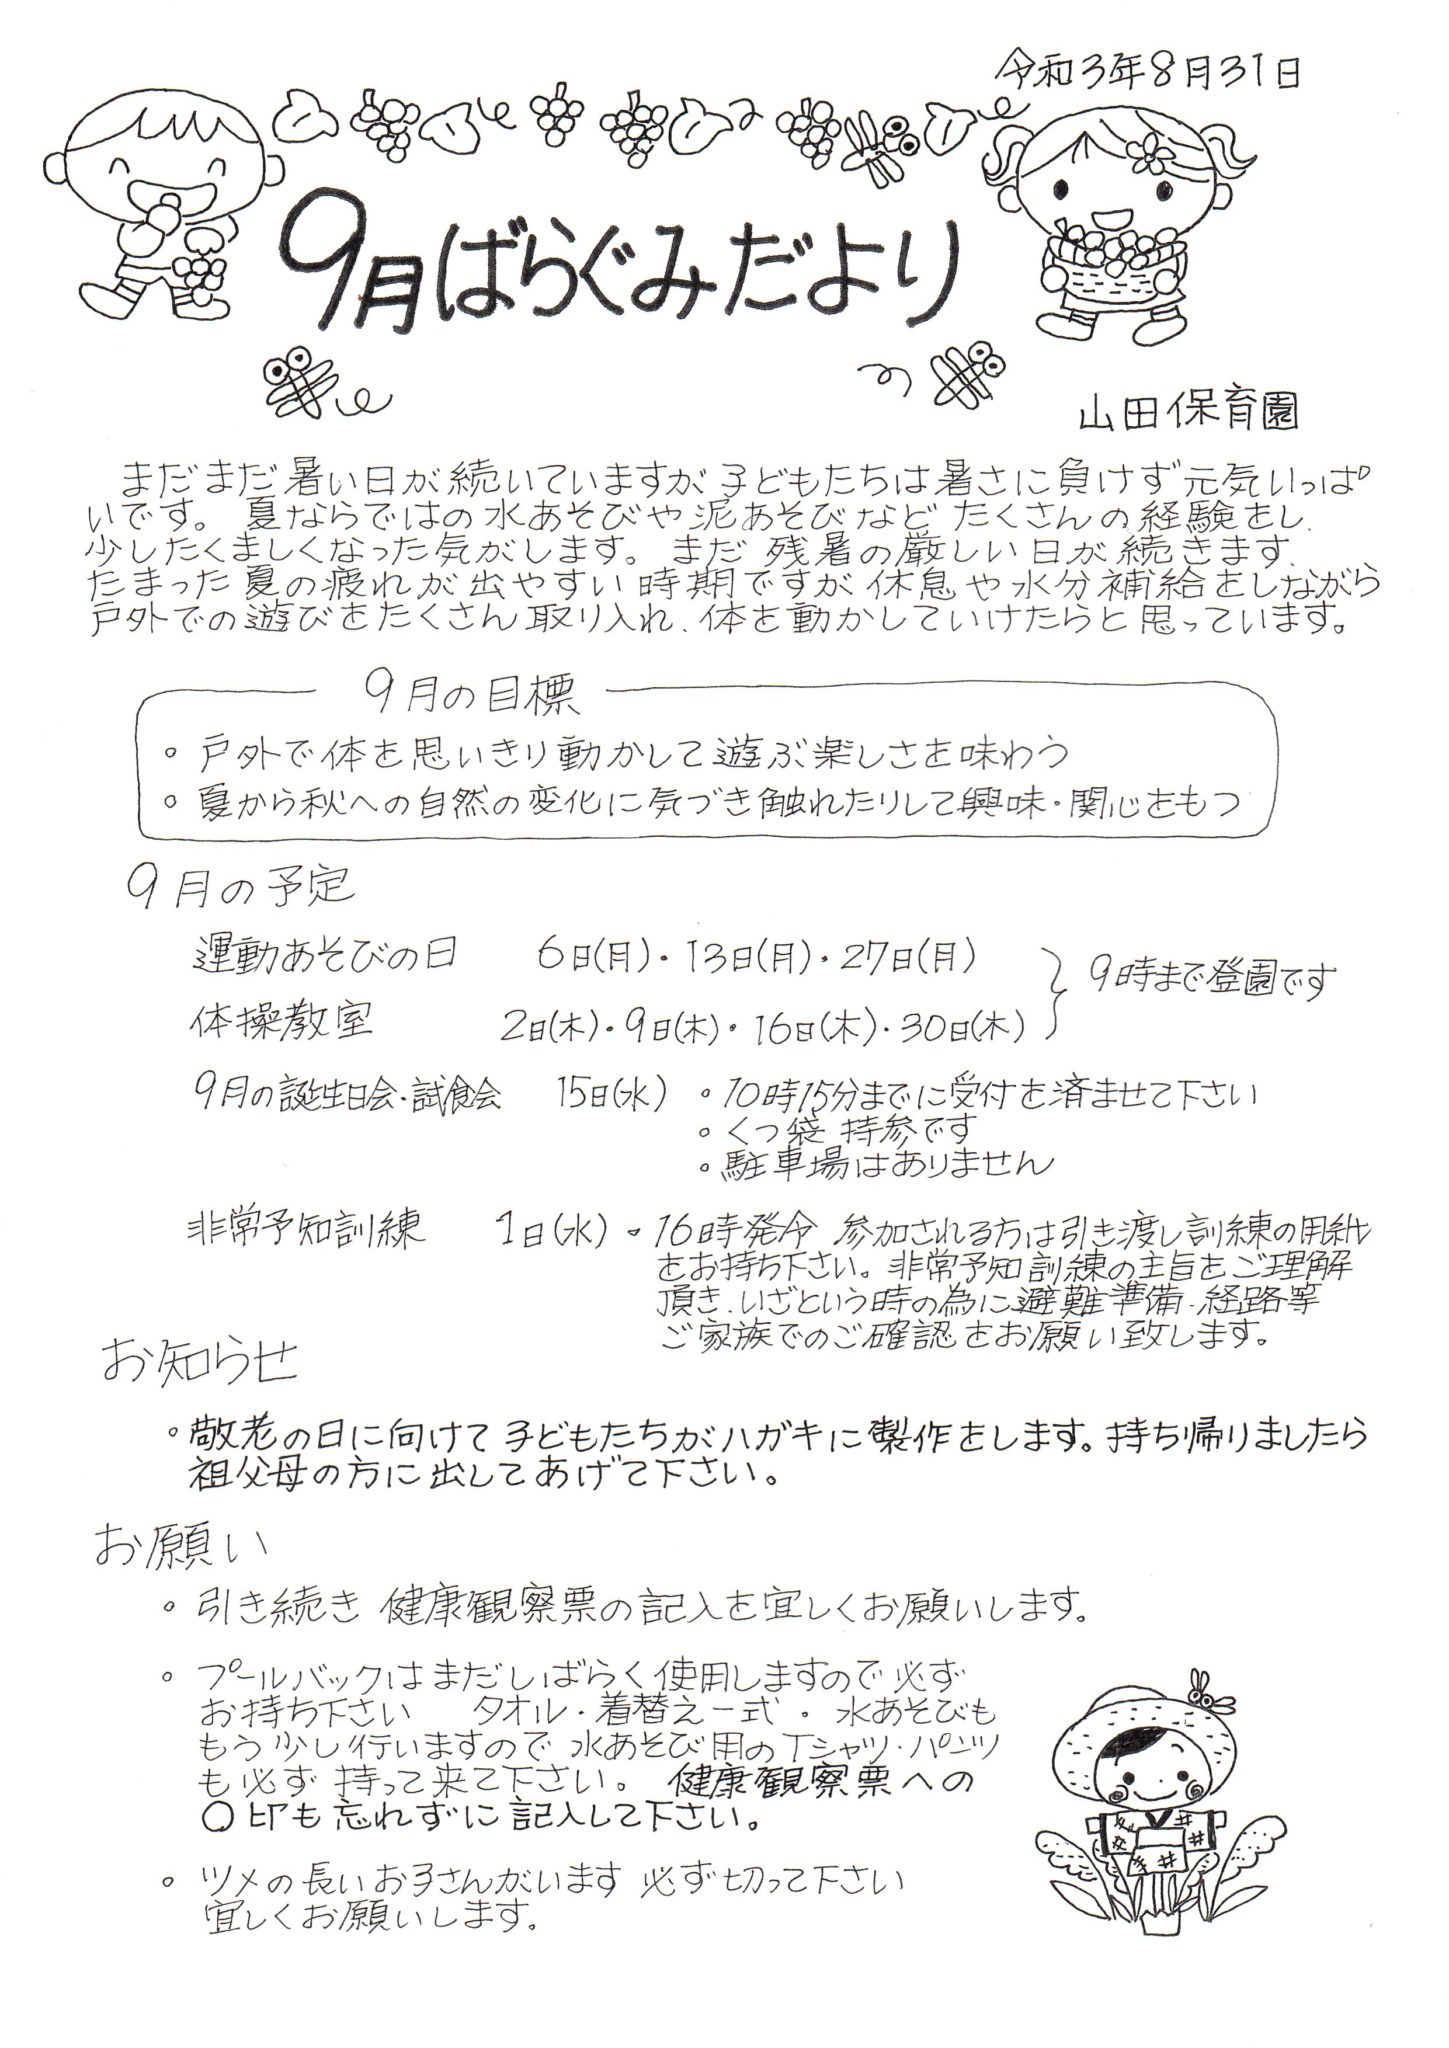 令和3年8月31日
9月ばらぐみだより
山田保育園
まだまだ暑い日が続いていますが子どもたちは暑さに負けず元気いっぱ
いです。夏ならではの水あそびや泥あそびなどたくさんの経験をし、
少したくましくなった気がします。まだ残暑の厳しい日が続きます、
たまった夏の疲れが出やすい時期ですが休息や水分補給をしながら
戸外での遊びをたくさん取り入れ、体を動かしていけたらと思っています。
9月の目標
○ 戸外で体を思いきり動かして遊ぶ楽しさを味わう
○ 夏から秋への自然の変化に気づき触れたりして興味・関心をもつ
9月の予定
運動あそびの日 6日(月)・13日(月)・27日(月)
体操教室 2日(木)・9日(木)・16日(木)・30日(木)
9時まで登園です
9月の誕生日会・試食会 15日(水) ○10時15分までに受付を済ませて下さい
○くつ袋 持参です
○駐車場はありません
非常予知訓練 1日(水) ○16時発令 参加される方は引き渡し訓練の用紙
をお持ち下さい。非常予知訓練の主旨をご理解
頂き、いざという時の為に避難準備・経路等
ご家族でのご確認をお願い致します。
お知らせ
○敬老の日に向けて子どもたちがハガキに製作をします。持ち帰りましたら
祖父母の方に出してあげて下さい。
お願い
○ 引き続き 健康観察票の記入を宜しくお願いします。
○ プールバックはまだしばらく使用しますので必ず
お持ち下さい タオル・着替え一式・水あそびも
もう少し行いますので水あそび用のTシャツ・パンツ
も必ず持って来て下さい。健康観察票への
○印も忘れずに記入して下さい。
○ ツメの長いお子さんがいます 必ず切って下さい
宜しくお願いします。